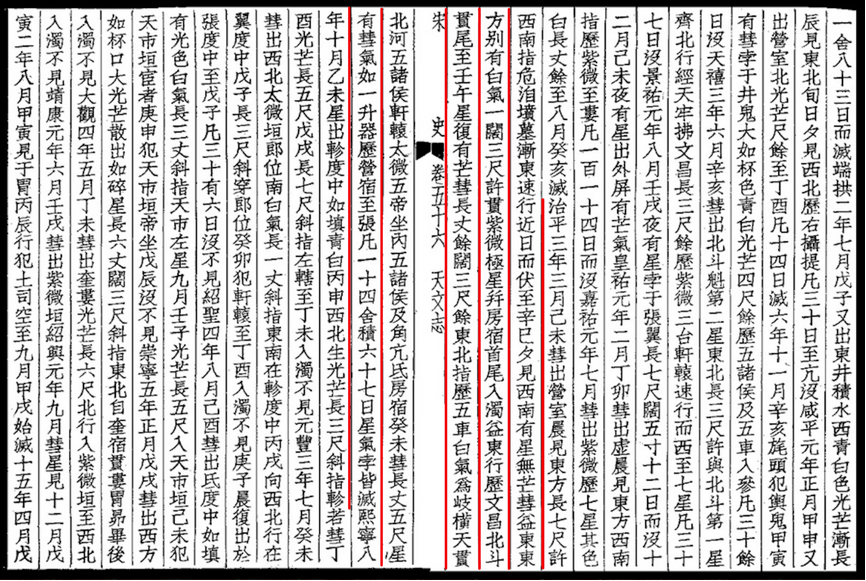 一舍八十三日而滅端拱二年七月戊子又出東井積水西青白色光芒漸長
辰見東北旬日夕見西北歷右攝提凡三十日至亢沒咸平元年正月甲申又
出營室北光芒尺餘至丁酉凡十四日滅六年十一月辛亥旄頭犯輿鬼甲寅
有彗孛于井鬼大如杯色青白光芒四尺餘歷五諸侯及五車入參凡三十餘
日沒天禧三年六月辛亥彗出北斗魁第二星東北長三尺許與北斗第一星
齊北行經天牢拂文昌長三尺餘歷紫微三台軒轅速行而西至七星凡三十
七日沒景祐元年八月壬戌夜有星孛于張翼長七尺闊五寸十二日而沒十
二月己未夜有星出外屏有芒氣皇祐元年二月丁卯彗出虛晨見東方西南
指歷紫微至婁凡一百一十四日而沒嘉祐元年七月彗出紫微歷七星其色
白長丈餘至八月癸亥滅治平三年三月己未彗出營室晨見東方長七尺許
西南指危洎墳墓漸東速行近日而伏至辛巳夕見西南有星無芒彗益東東
方別有白氣一闊三尺許貫紫微極星并房宿首尾入濁益東行歷文昌北斗
貫尾至壬午星復有芒彗長丈餘闊三尺餘東北指歷五車白氣為岐橫天貫
宋史 卷五十六 天文志
北河五諸侯軒轅太微五帝坐內五諸侯及角亢氐房宿癸未彗長丈五尺星
有彗氣如一升器歷營宿至張凡一十四舍積六十七日星氣孛皆滅熙寧八
年十月乙未星出軫度中如填青白丙申西北生光芒長三尺斜指軫若彗丁
酉光芒長五尺戊戌長七尺斜指左轄至丁未入濁不見元豐三年七月癸未
彗出西北太微垣郎位南白氣長一丈斜指東南在軫度中丙戌向西北行在
翼度中戊子長三尺斜穿郎位癸卯犯軒轅至丁酉入濁不見庚子晨復出於
張度中至戊子凡三十有六日沒不見紹聖四年八月己酉彗出氐度中如填
有光色白氣長三丈斜指天市左星九月壬子光芒長五尺入天市垣己未犯
天市垣宦者庚申犯天市垣帝坐戊辰沒不見崇寧五年正月戊戌彗出西方
如杯口大光芒散出如碎星長六丈闊三尺斜指東北自奎宿貫婁胃昴畢後
入濁不見大觀四年五月丁未彗出奎婁光芒長六尺北行入紫微垣至西北
入濁不見靖康元年六月壬戌彗出紫微垣紹興元年九月彗星見十二月戊
寅二年八月甲寅見于胃丙辰行犯土司空至九月甲戌始滅十五年四月戊